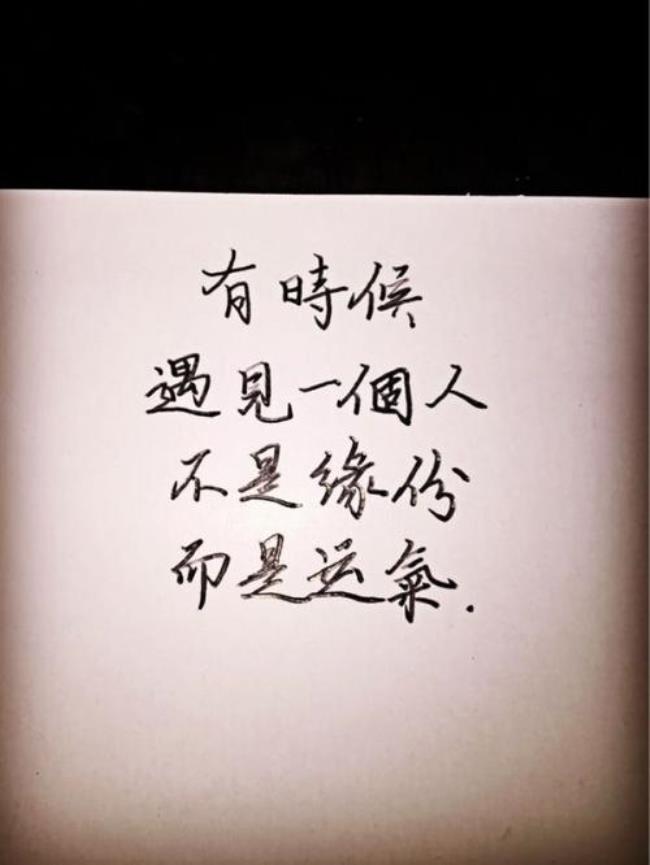 有時候
遇見一個人
不是緣份
而是运氣.